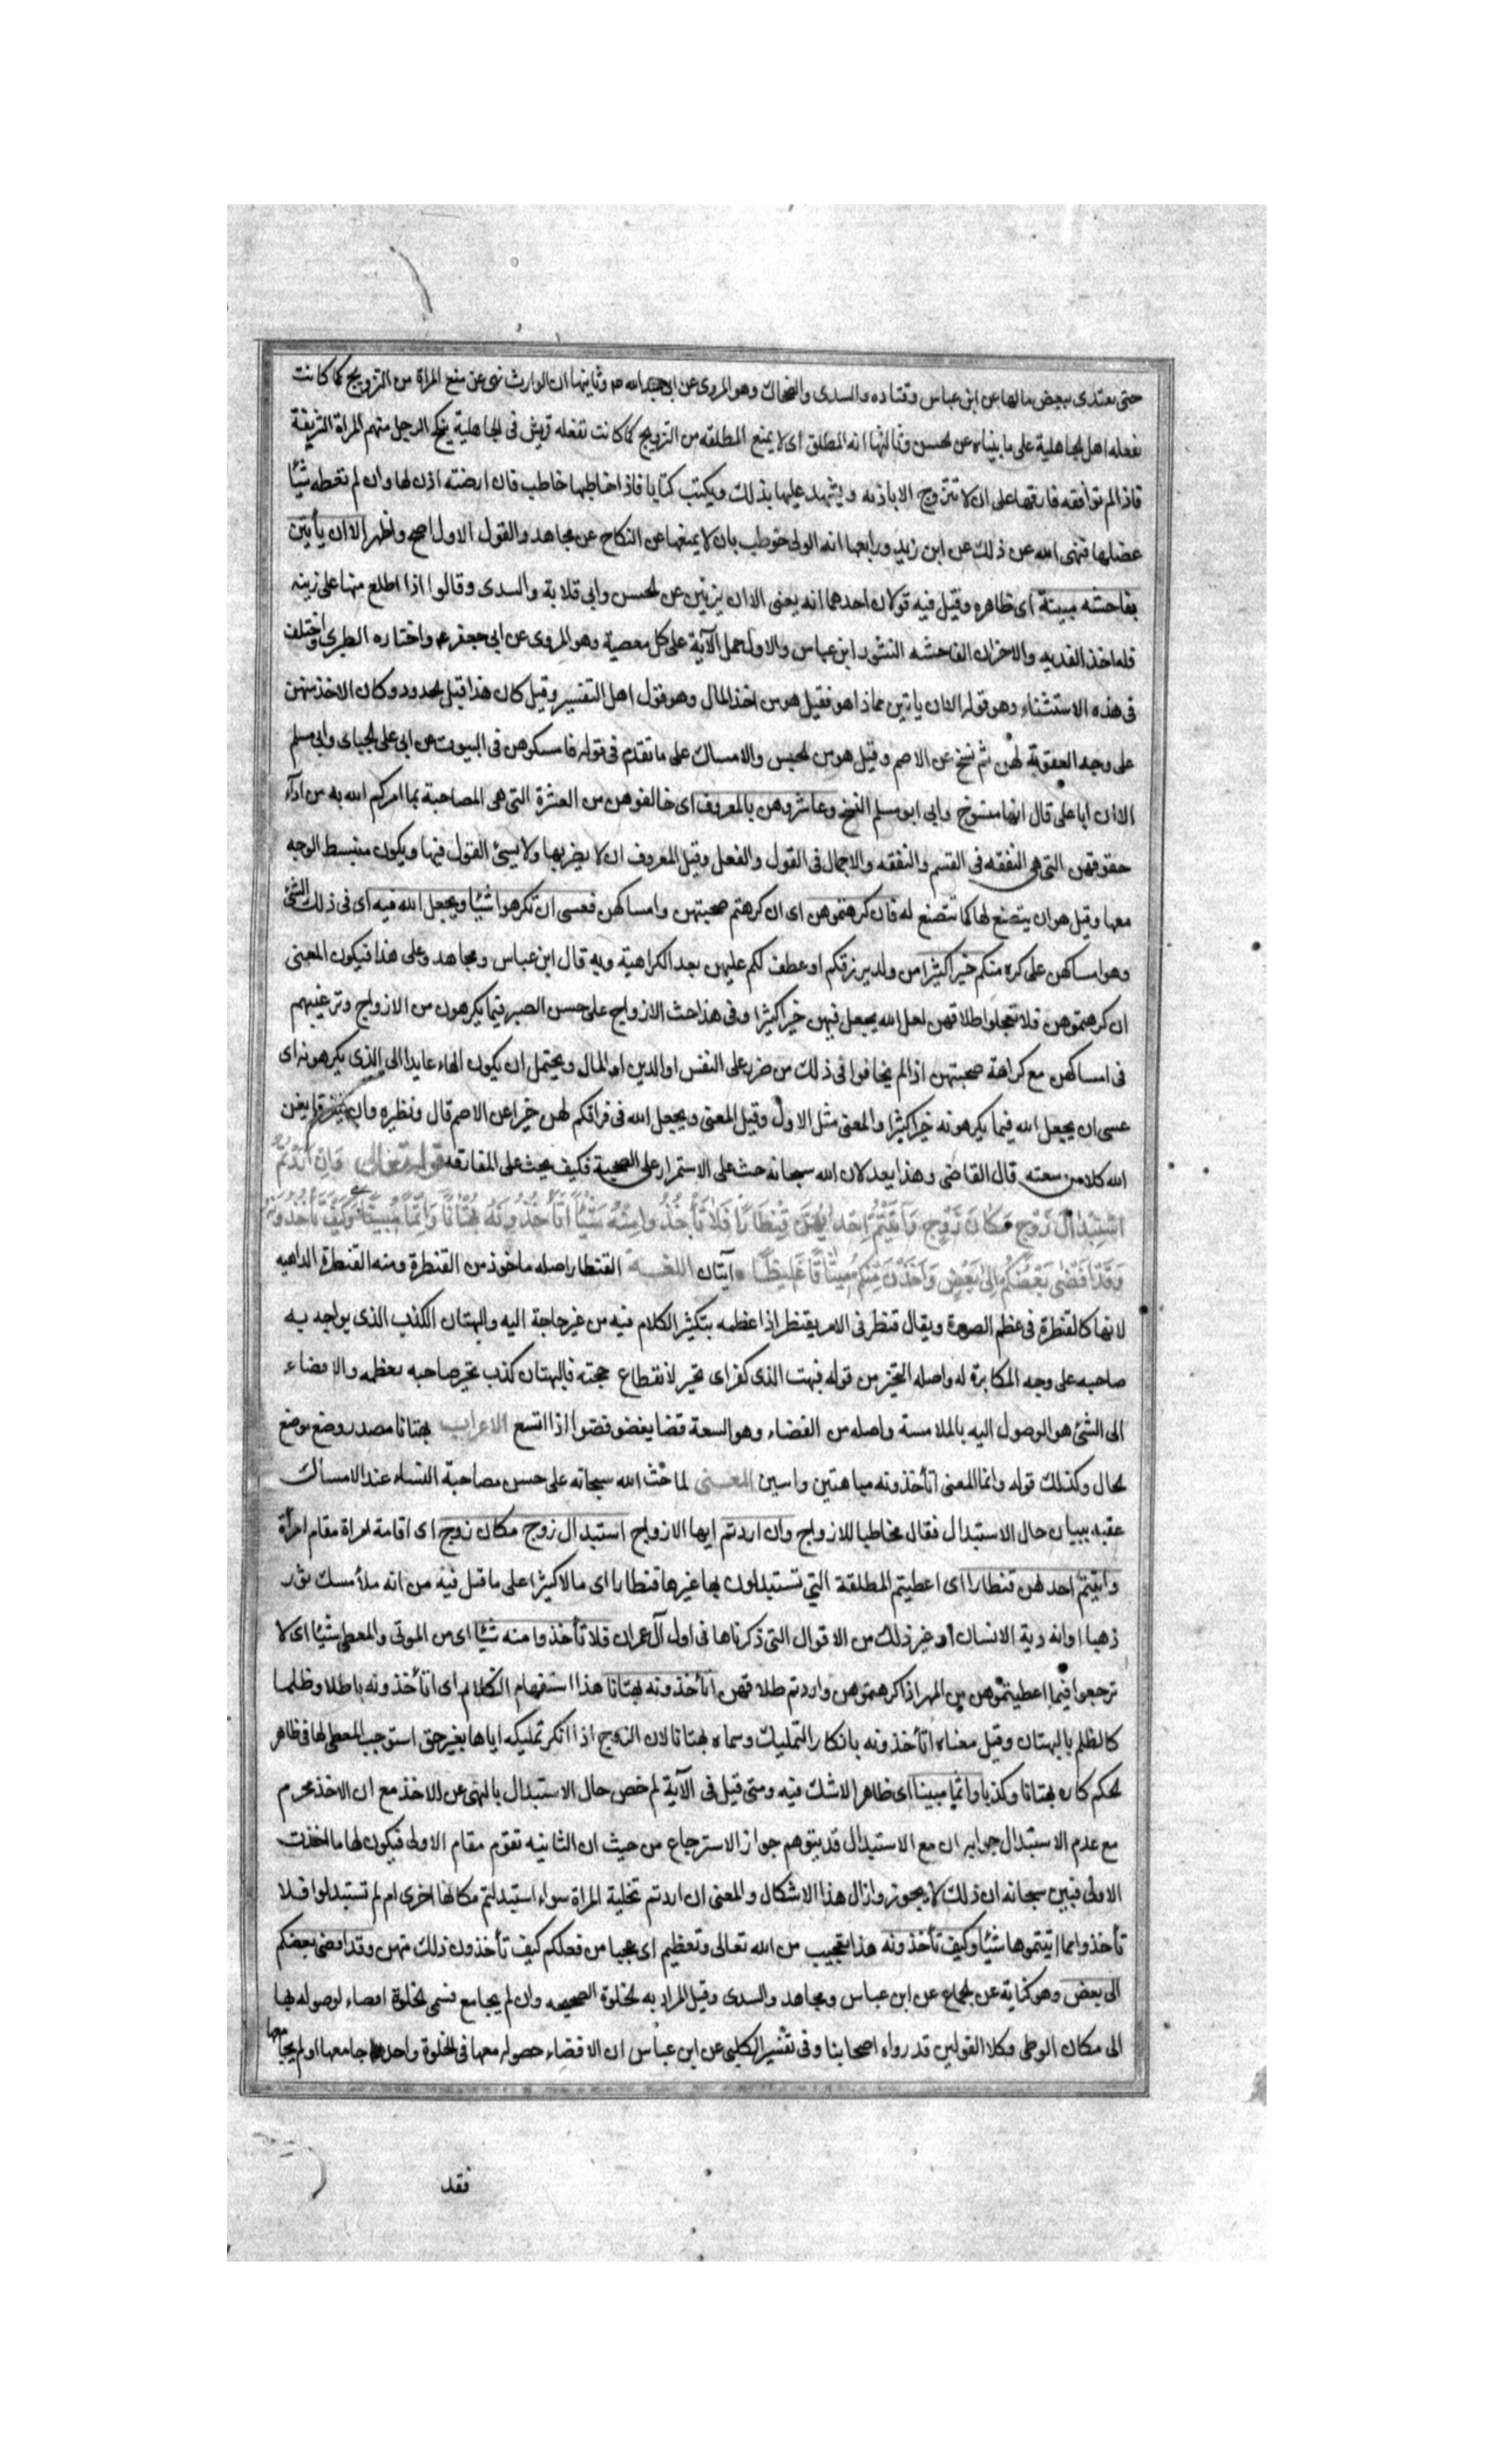 حتى يفتدى ببعض مالها عن ابن عباس وقتاده والسدى والضحاك وهو المروى عن ابى عبدالله ع وثانيها ان الوارث نهى عن منع المراة من التزويج كما كانت
يفعله اهل الجاهلية على ما بيناه عن الحسن وثالثها انه المطلق اى لا يمنع المطلقه من التزويج كما كانت تفعله قريش فى الجاهلية ينكح الرجل منهم المراة الشريفة
فاذا لم توافقه فارقها على ان لا تتزوج الا باذنه ويشهد عليها بذلك ويكتب كتابا فاذا خاطبها خاطب فان ارضته اذن لها وان لم تعطه شيئا
عضلها فنهى الله عن ذلك عن ابن زيد ورابعها انه الولى خوطب بان لا يمنعها عن النكاح عن مجاهد والقول الاول اصح واظهر الا ان يأتين
بفاحشه مبينة اى ظاهره وقيل فيه قولان احدهما انه يعنى الا ان يزنين عن الحسن وابى قلابة والسدى وقالوا اذا اطلع منها على زينه
فله اخذ الفديه والاخران الفاحشه النشوز ابن عباس والاولى حمل الآية على كل معصية وهو المروى عن ابى جعفر ع واختاره الطبرى واختلف
فى هذه الاستثناء وهو قوله الا ان ياتين مماذا هو فقيل هو من اخذ المال وهو قول اهل التفسير وقيل كان هذا قبل الحدود وكان الاخذ منهن
على وجه العقوبة لهن ثم نسخ عن الاصم وقيل هو من الحبس والامساك على ما تقدم فى قوله فامسكوهن فى البيوت عن ابى على الجبائى وابى مسلم
الا ان ابا على قال انها منسوخ وابى ابو مسلم النسخ وعاشروهن بالمعروف اى خالقوهن من العشرة التى هى المصاحبة بما امركم الله به من اداء
حقوقهن التى هى النفقه فى القسم والنفقه والاجمال فى القول والفعل وقيل المعروف ان لا يضربها ولا يسئ القول فيها ويكون منبسط الوجه
معها وقيل هو ان يتصنع لها كما تتصنع له فان كرهتموهن اى ان كرهتم صحبتهن وامساكهن فعسى ان تكرهوا شيئا ويجعل الله فيه اى فى ذلك الشئ
وهو امساكهن على كره منكم خيرا كثيرا من ولد يرزقكم او عطف لكم عليهن بعد الكراهية وبه قال ابن عباس ومجاهد وعلى هذا فيكون المعنى
ان كرهتموهن فلا تعجلوا طلاقهن لعل الله يجعل فيهن خيرا كثيرا وفى هذا حث الازواج على حسن الصبر فيما يكرهون من الازواج وترغيبهم
فى امساكهن مع كراهة صحبتهن اذا لم يخافوا فى ذلك من ضرر على النفس او الدين او المال ويحتمل ان يكون الهاء عايدا الى الذى يكرهونه اى
عسى ان يجعل الله فيما يكرهونه خيرا كثيرا والمعنى مثل الاول وقيل المعنى ويجعل الله فى فراقكم لهن خيرا عن الاصم قال ونظيره وان يتفرقا يغن
الله كلا من سعته قال القاضى وهذا بعد لان الله سبحانه حث على الاستمرار على الصحبة فكيف يحث على المفارقه قوله تعالى فان اردتم
استبدال زوج مكان زوج وآتيتم احديهن قنطارا فلا تأخذوا منه شيئا اتأخذونه بهتانا واثما مبينا وكيف تأخذونه
وقد افضى بعضكم الى بعض واخذن منكم ميثاقا غليظا آيتان اللغة القنطار اصله ماخوذ من القنطرة ومنه القنطرة الداهيه
لانها كالقنطرة فى عظم الصورة ويقال قنطر فى الامر يقنطر اذا عظمه بتكثير الكلام فيه من غير حاجة اليه والبهتان الكذب الذى يواجه به
صاحبه على وجه المكابرة له واصله التحير من قوله فبهت الذى كفر اى تحير لانقطاع حجته فالبهتان كذب تحير صاحبه بعظمه والافضاء
الى الشئ هو الوصول اليه بالملامسة واصله من الفضاء وهو السعة فضا يفضو فضوا اذا اتسع الاعراب بهتانا مصدر وضع موضع
الحال وكذلك قوله واثما المعنى اتأخذونه مباهتين واسين المعنى لما حث الله سبحانه على حسن مصاحبة النساء عند الامساك
عقبه ببيان حال الاستبدال فقال مخاطبا للازواج وان اردتم ايها الازواج استبدال زوج مكان زوج اى اقامة امراة مقام امرأة
وآتيتم احدهن قنطارا اى اعطيتم المطلقة التى تستبدلون بها غيرها قنطارا اى مالا كثيرا على ما قيل فيه من انه ملأ مسك ثور
ذهبا او انه دية الانسان او غير ذلك من الاقوال التى ذكرناها فى اول آل عمران فلا تأخذوا منه شيئا اى من الموتى والمعطى شيئا اى لا
ترجعوا فيما اعطيتموهن من المهر اذا كرهتموهن واردتم طلاقهن اتأخذونه بهتانا هذا استفهام الكلام اى اتأخذونه باطلا وظلما
كالظلم بالبهتان وقيل معناه اتأخذونه بانكار التمليك وسماه بهتانا لان الزوج اذا انكر تمليكه اياها بغير حق استوجب المعطى لها فى ظاهر
الحكم كان بهتانا وكذبا واثما مبينا اى ظاهرا لا شك فيه ومتى قيل فى الآية لم خص حال الاستبدال بالنهى عن الاخذ مع ان الاخذ محرم
مع عدم الاستبدال جوابه ان مع الاستبدال قد يتوهم جواز الاسترجاع من حيث ان الثانيه تقوم مقام الاولى فيكون لها ما اخذت
الاولى فبين سبحانه ان ذلك لا يجوز وازال هذا الاشكال والمعنى ان اردتم تخلية المراة سواء استبدلتم مكانها اخرى ام لم تستبدلوا فلا
تأخذوا مما اتيتموها شيئا وكيف تأخذونه هذا تعجيب من الله تعالى وتعظيم اى عجبا من فعلكم كيف تأخذون ذلك منهن وقد افضى بعضكم
الى بعض وهو كناية عن الجماع عن ابن عباس ومجاهد والسدى وقيل المراد به الخلوة الصحيحه وان لم يجامع فسمى الخلوة افضاء لوصوله بها
الى مكان الوطى وكلا القولين قد رواه اصحابنا وفى تفسير الكلبى عن ابن عباس ان الافضاء حصوله معها فى الخلوة واحدها جامعها او لم يجامعها
فقد